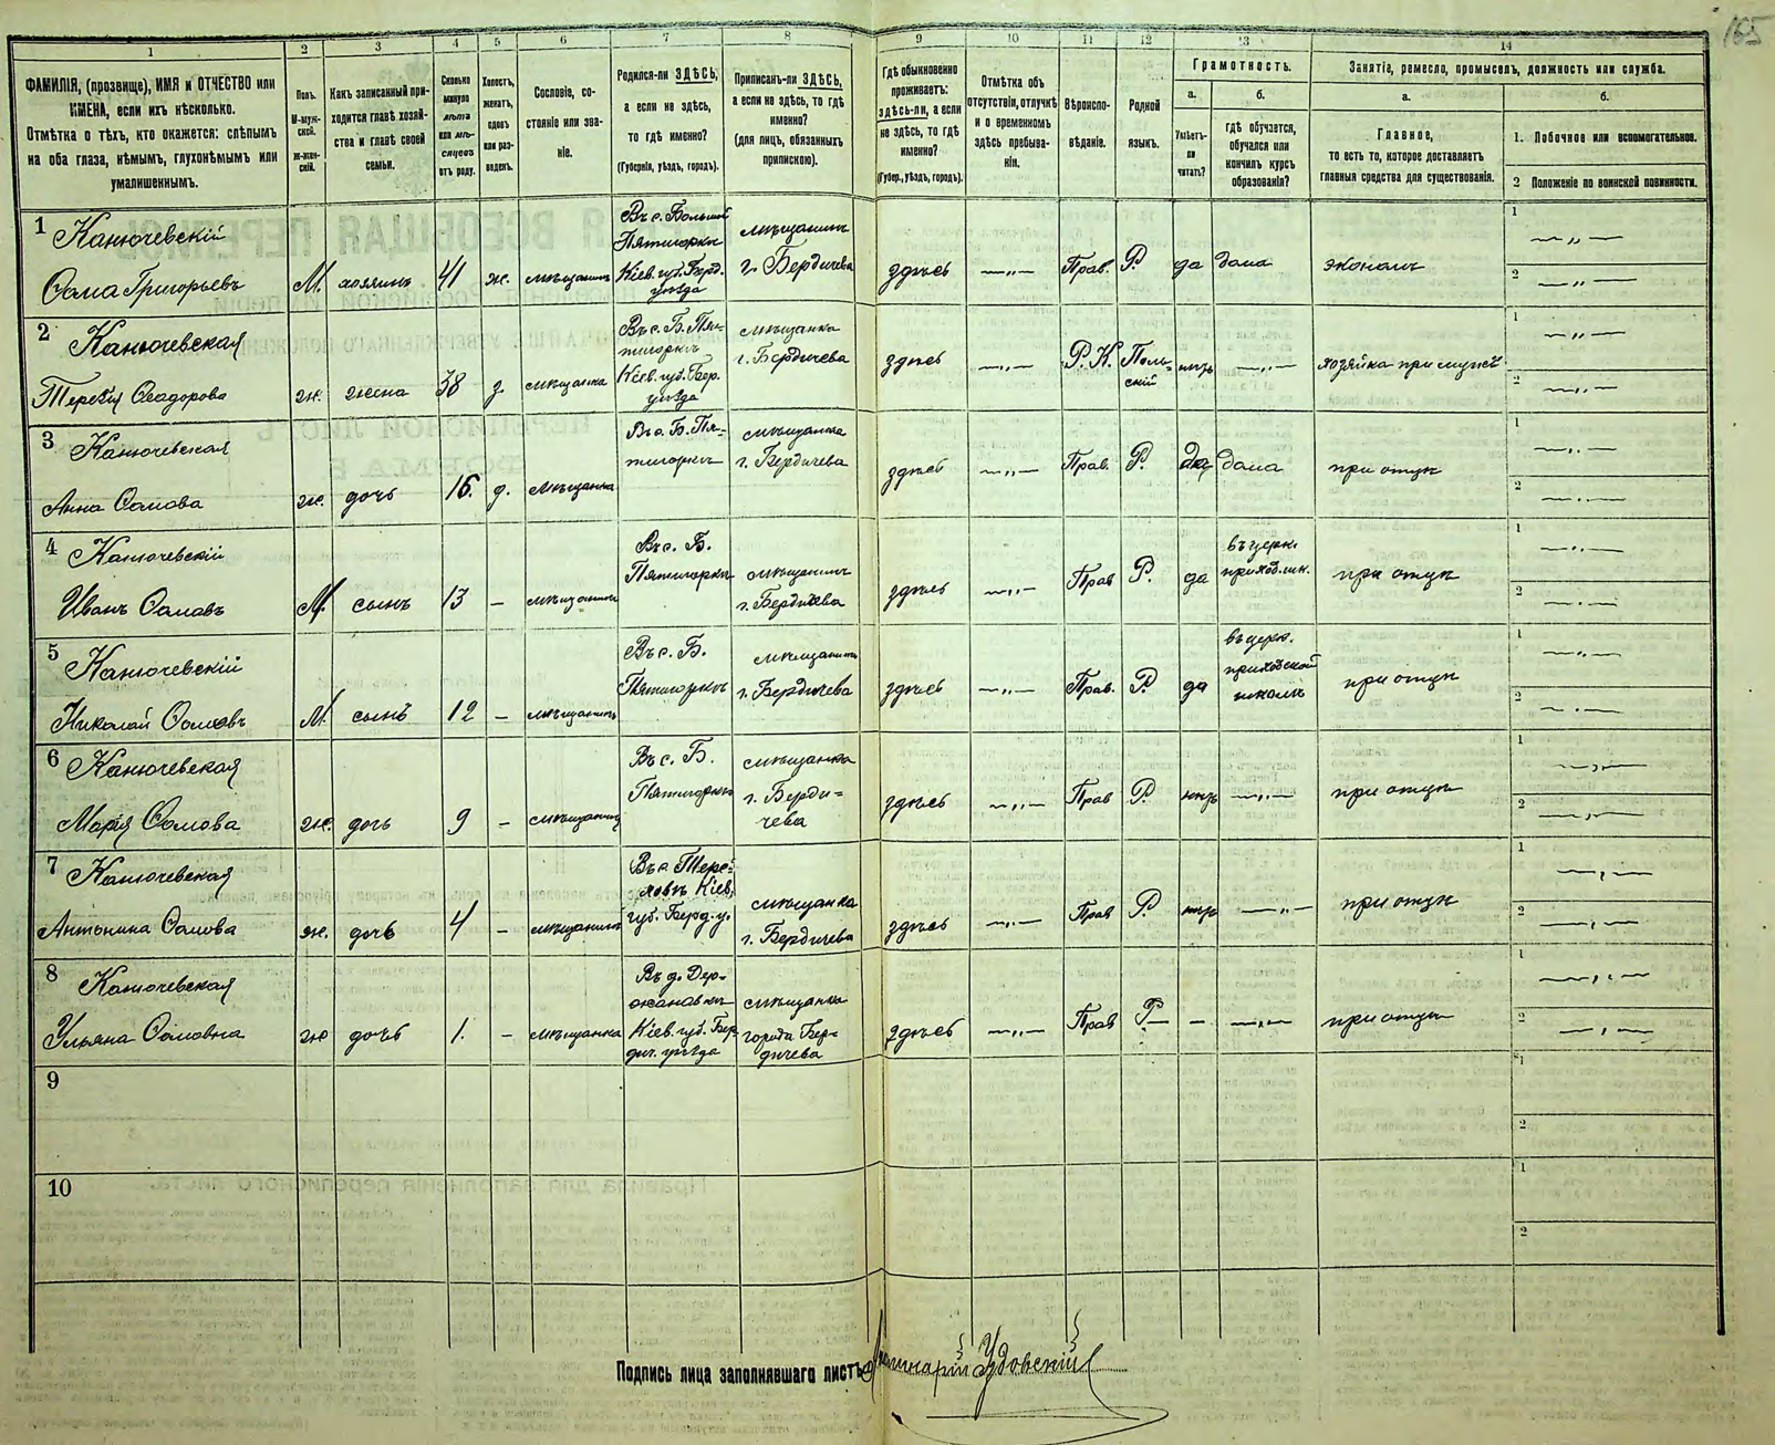 165
1
2
3
4
5
6
7
8
9
10
11
12
13
14
ФАМИЛІЯ, (прозвище), ИМЯ и ОТЧЕСТВО или
ИМЕНА, если ихъ нѣсколько.
Отмѣтка о тѣхъ, кто окажется: слѣпымъ
на оба глаза, нѣмымъ, глухонѣмымъ или
умалишеннымъ.
Полъ.
М-муж-
ской.
Ж-жен-
скій.
Какъ записанный при-
ходится главѣ хозяй-
ства и главѣ своей
семьи.
Сколько
минуло
лѣтъ
или мѣ-
сяцевъ
отъ роду.
Холостъ,
женатъ,
вдовъ
или раз-
веденъ.
Сословіе, со-
стояніе или зва-
ніе.
Родился-ли ЗДѢСЬ,
а если не здѣсь,
то гдѣ именно?
(Губернія, уѣздъ, городъ).
Приписанъ-ли ЗДѢСЬ,
а если не здѣсь, то гдѣ
именно?
(для лицъ, обязанныхъ
припискою).
Гдѣ обыкновенно
проживаетъ:
здѣсь-ли, а если
не здѣсь, то гдѣ
именно?
(Губер., уѣздъ, городъ).
Отмѣтка объ
отсутствіи, отлучкѣ
и о временномъ
здѣсь пребыва-
ніи.
Вѣроиспо-
вѣданіе.
Родной
языкъ.
Грамотность.
а.
Умѣетъ-
ли
читать?
б.
гдѣ обучается,
обучался или
кончилъ курсъ
образованія?
Занятіе, ремесло, промыселъ, должность или служба.
а.
Главное,
то есть то, которое доставляетъ
главныя средства для существованія.
б.
1. Побочное или вспомогательное.
2 Положеніе по воинской повинности.
1 Канючевскій
Сама Григорьевъ
М.
хозяинъ
41
ж.
мѣщанинъ
Въ с. Большой
Пятигоркѣ
Кіев. губ. Берд.
уѣзда
мѣщанинъ
г. Бердичева
здѣсь
Прав.
Р.
да
дома
экономъ
1
2
2 Канючевская
Ѳеадорова
ж.
жена
38
з.
мѣщанка
Въ с. Б. Пя-
тигоркѣ
Кіев. губ. Бер.
уѣзда
мѣщанка
г. Бердичева
здѣсь
Р. К.
Поль-
скій
нѣтъ
хозяйка при мужѣ
1
2
3 Канючевская
Анна Самова
ж.
дочь
16.
д.
мѣщанка
Въ с. Б. Пя-
тигоркѣ
мѣщанка
г. Бердичева
здѣсь
Прав.
Р.
да
дома
при отцѣ
1
2
4 Канючевскій
Иванъ Самовъ
М.
сынъ
13
–
мѣщанинъ
Въ с. Б.
Пятигоркѣ
мѣщанинъ
г. Бердичева
здѣсь
Прав
Р.
да
въ церк.
приход. шк.
при отцѣ
1
2
5 Канючевскій
Николай Самовъ
М.
сынъ
12
–
мѣщанинъ
Въ с. Б.
Пятигоркѣ
мѣщанинъ
г. Бердичева
здѣсь
Прав.
Р.
да
въ церк.
приходской
школѣ
при отцѣ
1
2
6 Канючевская
Марія Самова
ж.
дочь
9
–
Въ с. Б.
Пятигоркѣ
мѣщанка
г. Берди-
чева
здѣсь
Прав
Р.
нѣтъ
при отцѣ
1
2
7 Канючевская
Антонина Самова
ж.
дочь
4
–
Кіев.
губ. Берд. у.
мѣщанка
г. Бердичева
здѣсь
Прав
Р.
нѣтъ
при отцѣ
1
2
8 Канючевская
Ульяна Самовна
ж
дочь
1.
–
мѣщанка
Въ д. Дер-
жанавкѣ
Кіев. губ. Бер-
дич. уѣзда
мѣщанка
города Бер-
дичева
здѣсь
Прав
Р.
–
при отцѣ
1
2
9
1
2
10
1
2
Подпись лица заполнявшаго листъ